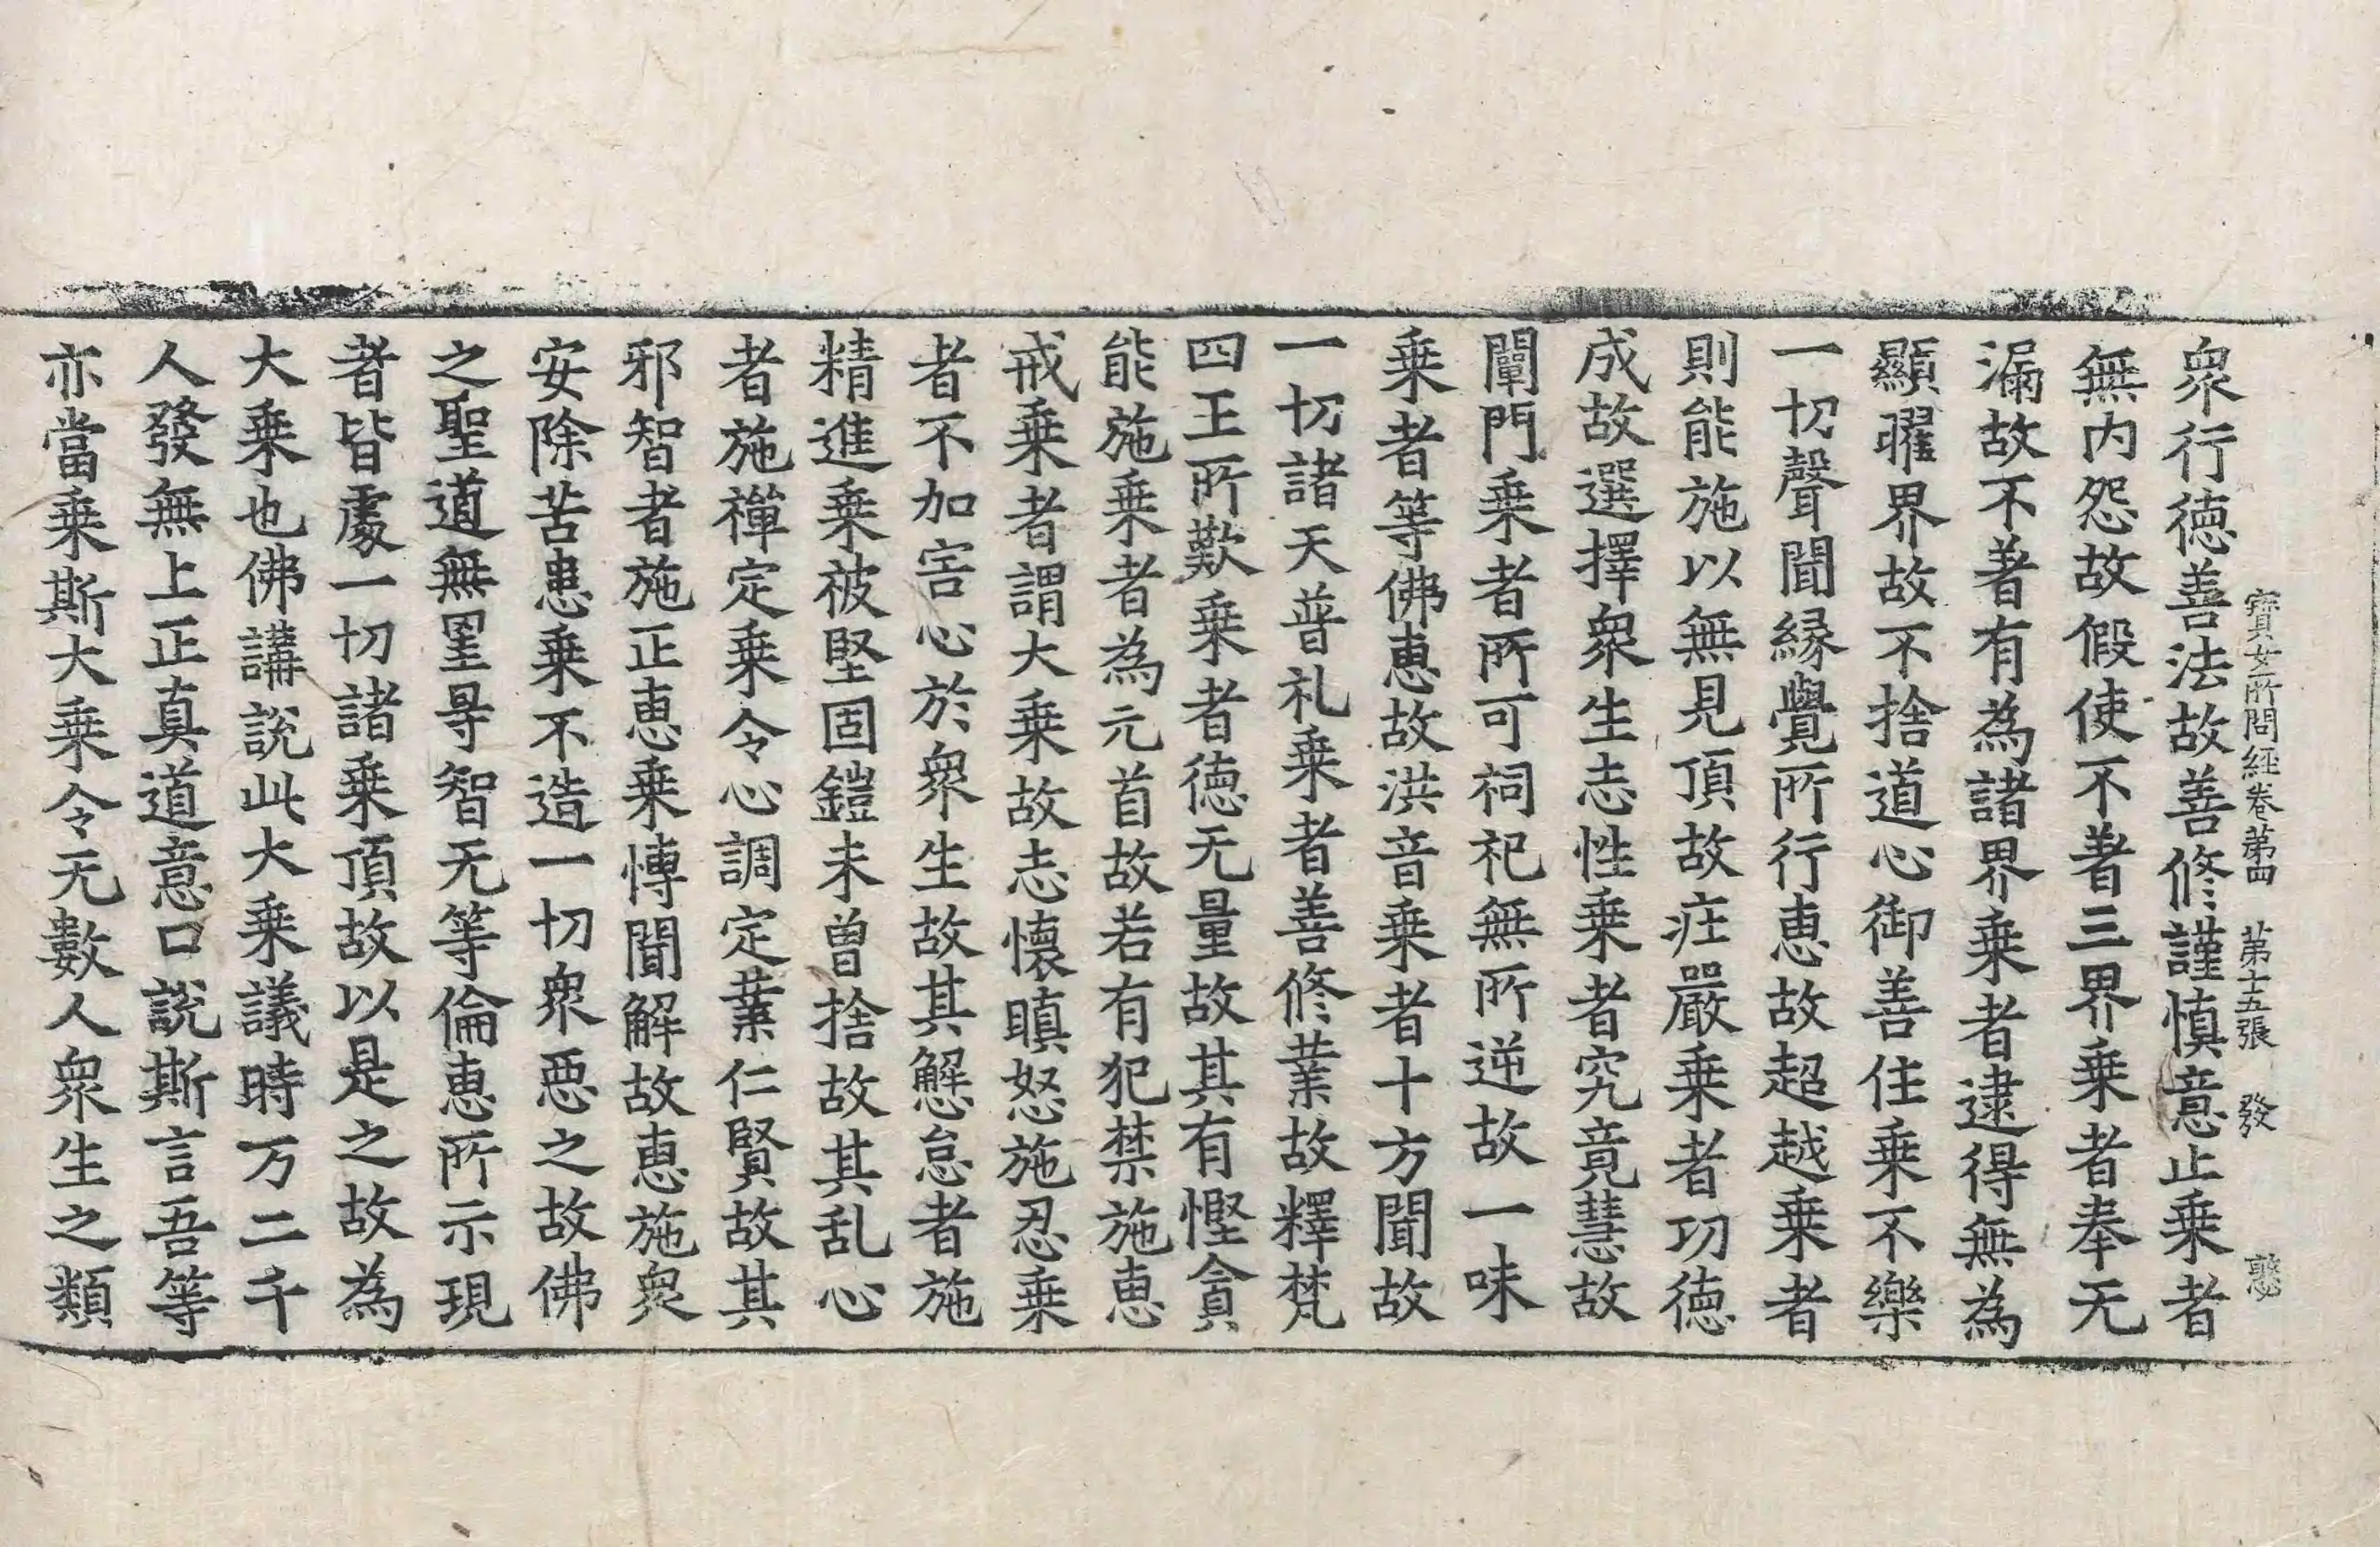 寶女所問經卷苐四　苐十五張　發
衆行德善法故善修謹慎意止乗者
無内怨故假使不著三界乗者奉无
漏故不著有為諸界乗者逮得無為
顯曜界故不捨道心御善住乗不樂
一切聲聞縁覺所行恵故超越乗者
則能施以無見頂故疘嚴乗者功德
成故選擇衆生志性乗者究竟慧故
闡門乗者所可祠祀無所逆故一味
乗者等佛恵故洪音乗者十方聞故
一切諸天普礼乗者善修業故釋梵
四王所歎乗者德无量故其有慳貪
能施乗者為元首故若有犯禁施恵
戒乗者謂大乗故志懷瞋怒施忍乗
者不加害心於衆生故其懈怠者施
精進乗被堅固鎧未曽捨故其乱心
者施禪定乗令心調定業仁賢故其
邪智者施正恵乗博聞解故恵施衆
安除苦患乗不造一切衆惡之故佛
之聖道無罣㝵智无等倫恵所示現
者皆處一切諸乗頂故以是之故為
大乗也佛講說此大乗議時万二千
人發無上正真道意口說斯言吾等
亦當乗斯大乗令无數人衆生之類